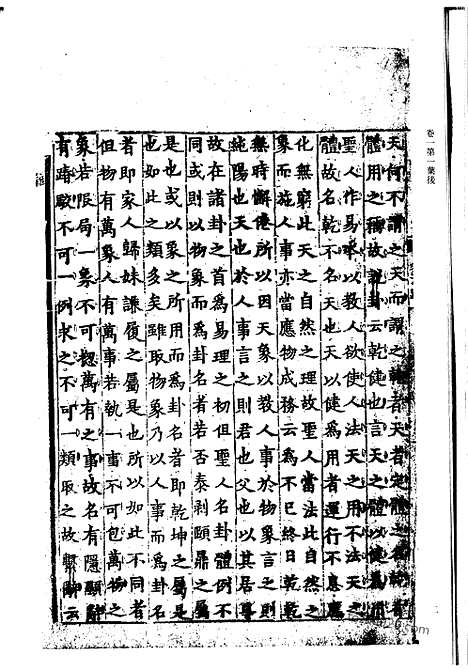 卷一第一葉後
天何不謂之天而謂之乾者天者定體之名乾者
體用之稱故說卦云乾健也言天之體以健爲用
聖人作易本以教人欲使人法天之用不法天之
體故名乾不名天也天以健爲用者運行不息應
化無窮此天之自然之理故聖人當法此自然之
象而施人事亦當應物成務云爲不已終日乾乾
無時懈倦所以因天象以教人事於物象言之則
純陽也天也於人事言之則君也父也以其居尊
故在諸卦之首爲易理之初但聖人名卦體例不
同或則以物象而爲卦名者若否泰剥頤鼎之屬
是也或以象之所用而爲卦名者即乾坤之屬是
也如此之類多矣雖取物象乃以人事而爲卦名
者即家人歸妹謙履之屬是也所以如此不同者
但物有萬象人有萬事若執一事不可包萬物之
象若限局一象不可揔萬有之事故名有隱顯辭
有踳駮不可一例求之不可一類取之故繫辭云